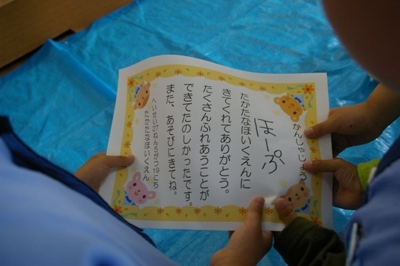 かんしゃじょう
ほーぷ
たかたなほいくえんに
きてくれてありがとう。
たくさんふれあうことが
できてたのしかったです。
また、あそびにきてね。
たかたなほいくえん